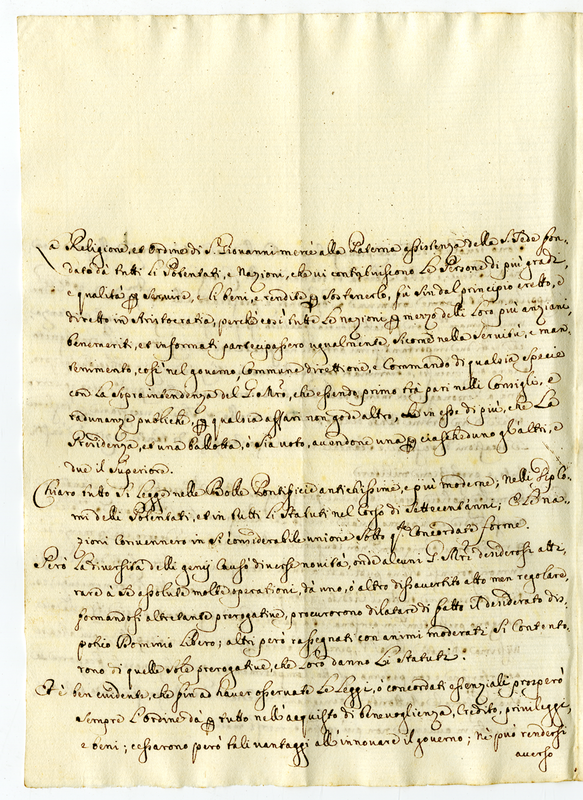 La Religione, et Ordine di S. Giovanni mercè alla Paterna assistenza della S. Sede fon-
dato da tutti li Potentati, e Nazioni, che vi contribuiscono le Persone di più gradi,
e qualità per servire, e li beni, e rendite per sostenerlo, fù sin dal principio eretto, e
diretto in Aristocratia, perche così tutte le nazioni per mezzo delli loro più anziani,
benemeriti, et informati partecipassero ugualmente, sicome nella servitù, e man-
tenimento, così nel governo commune direttione, e commando di qualsia specie
con la sopra intendenza del G. Mro, che essendo primo trà pari nelli Consigli, e
radunanze publiche, per qualsia affari non gode altro, in esse di più, che La
Presidenza, et una ballotta, ò sia voto, avendone una per ciascheduno gl'altri, e
due il superiore.
Chiaro tutto si legge nelle Bolle Pontificie antichissime, e più moderne; nelli Diplo-
mi delli Potentati, et in tutti li Statuti nel corso di Settecent'anni; e le na-
zioni convennero in sì considerabile unione sotto qte concordate forme.
Però la diversità delli genij causò diverse novità, onde alcuni G. Mri desiderosi atti-
rare à se assolute molte operationi, dà uno, ò altro disavvertito atto men regolare,
formandosi altretante prerogative, procurorono dilatare di fatto il desiderato dis-
potico Dominio libero; altri però rassegnati con animi moderati si contento-
rono di quelle sole prerogative, che loro danno li statuti.
Et è ben evidente, che fin à haver osservate le leggi, ò concordati essenziali prosperò
sempre l'ordine dà per tutto nell'acquisto di benevoglienza, credito, privileggi,
e beni; cessarono però tali vantaggi all'innovare il governo; nè può rendersi
averso